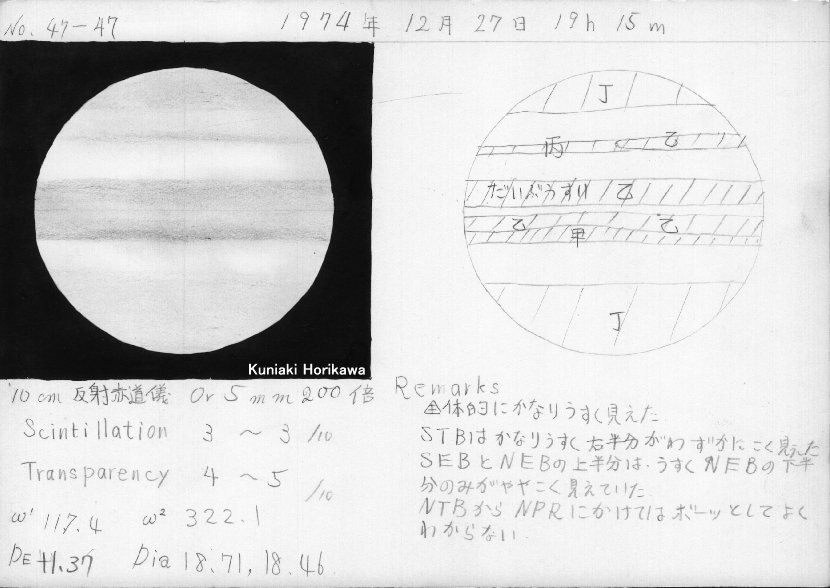 No. 47-47
1974年 12月 27日 19h 15m
丁
丙 乙
だいぶうすい 乙
乙 甲 乙
丁
Kuniaki Horikawa
10cm 反射赤道儀 Or 5mm 200倍
Scintillation 3 ～ 3 /10
Transparency 4 ～ 5 /10
ω¹ 117.4 ω² 322.1
DE +1.37 Dia 18.71, 18.46
Remarks
全体的にかなりうすく見えた
STBはかなりうすく右半分がわずかにこく見えた
SEBとNEBの上半分は、うすくNEBの下半
分のみがややこく見えていた.
NTBからNPRにかけてはボーッとしてよく
わからない.